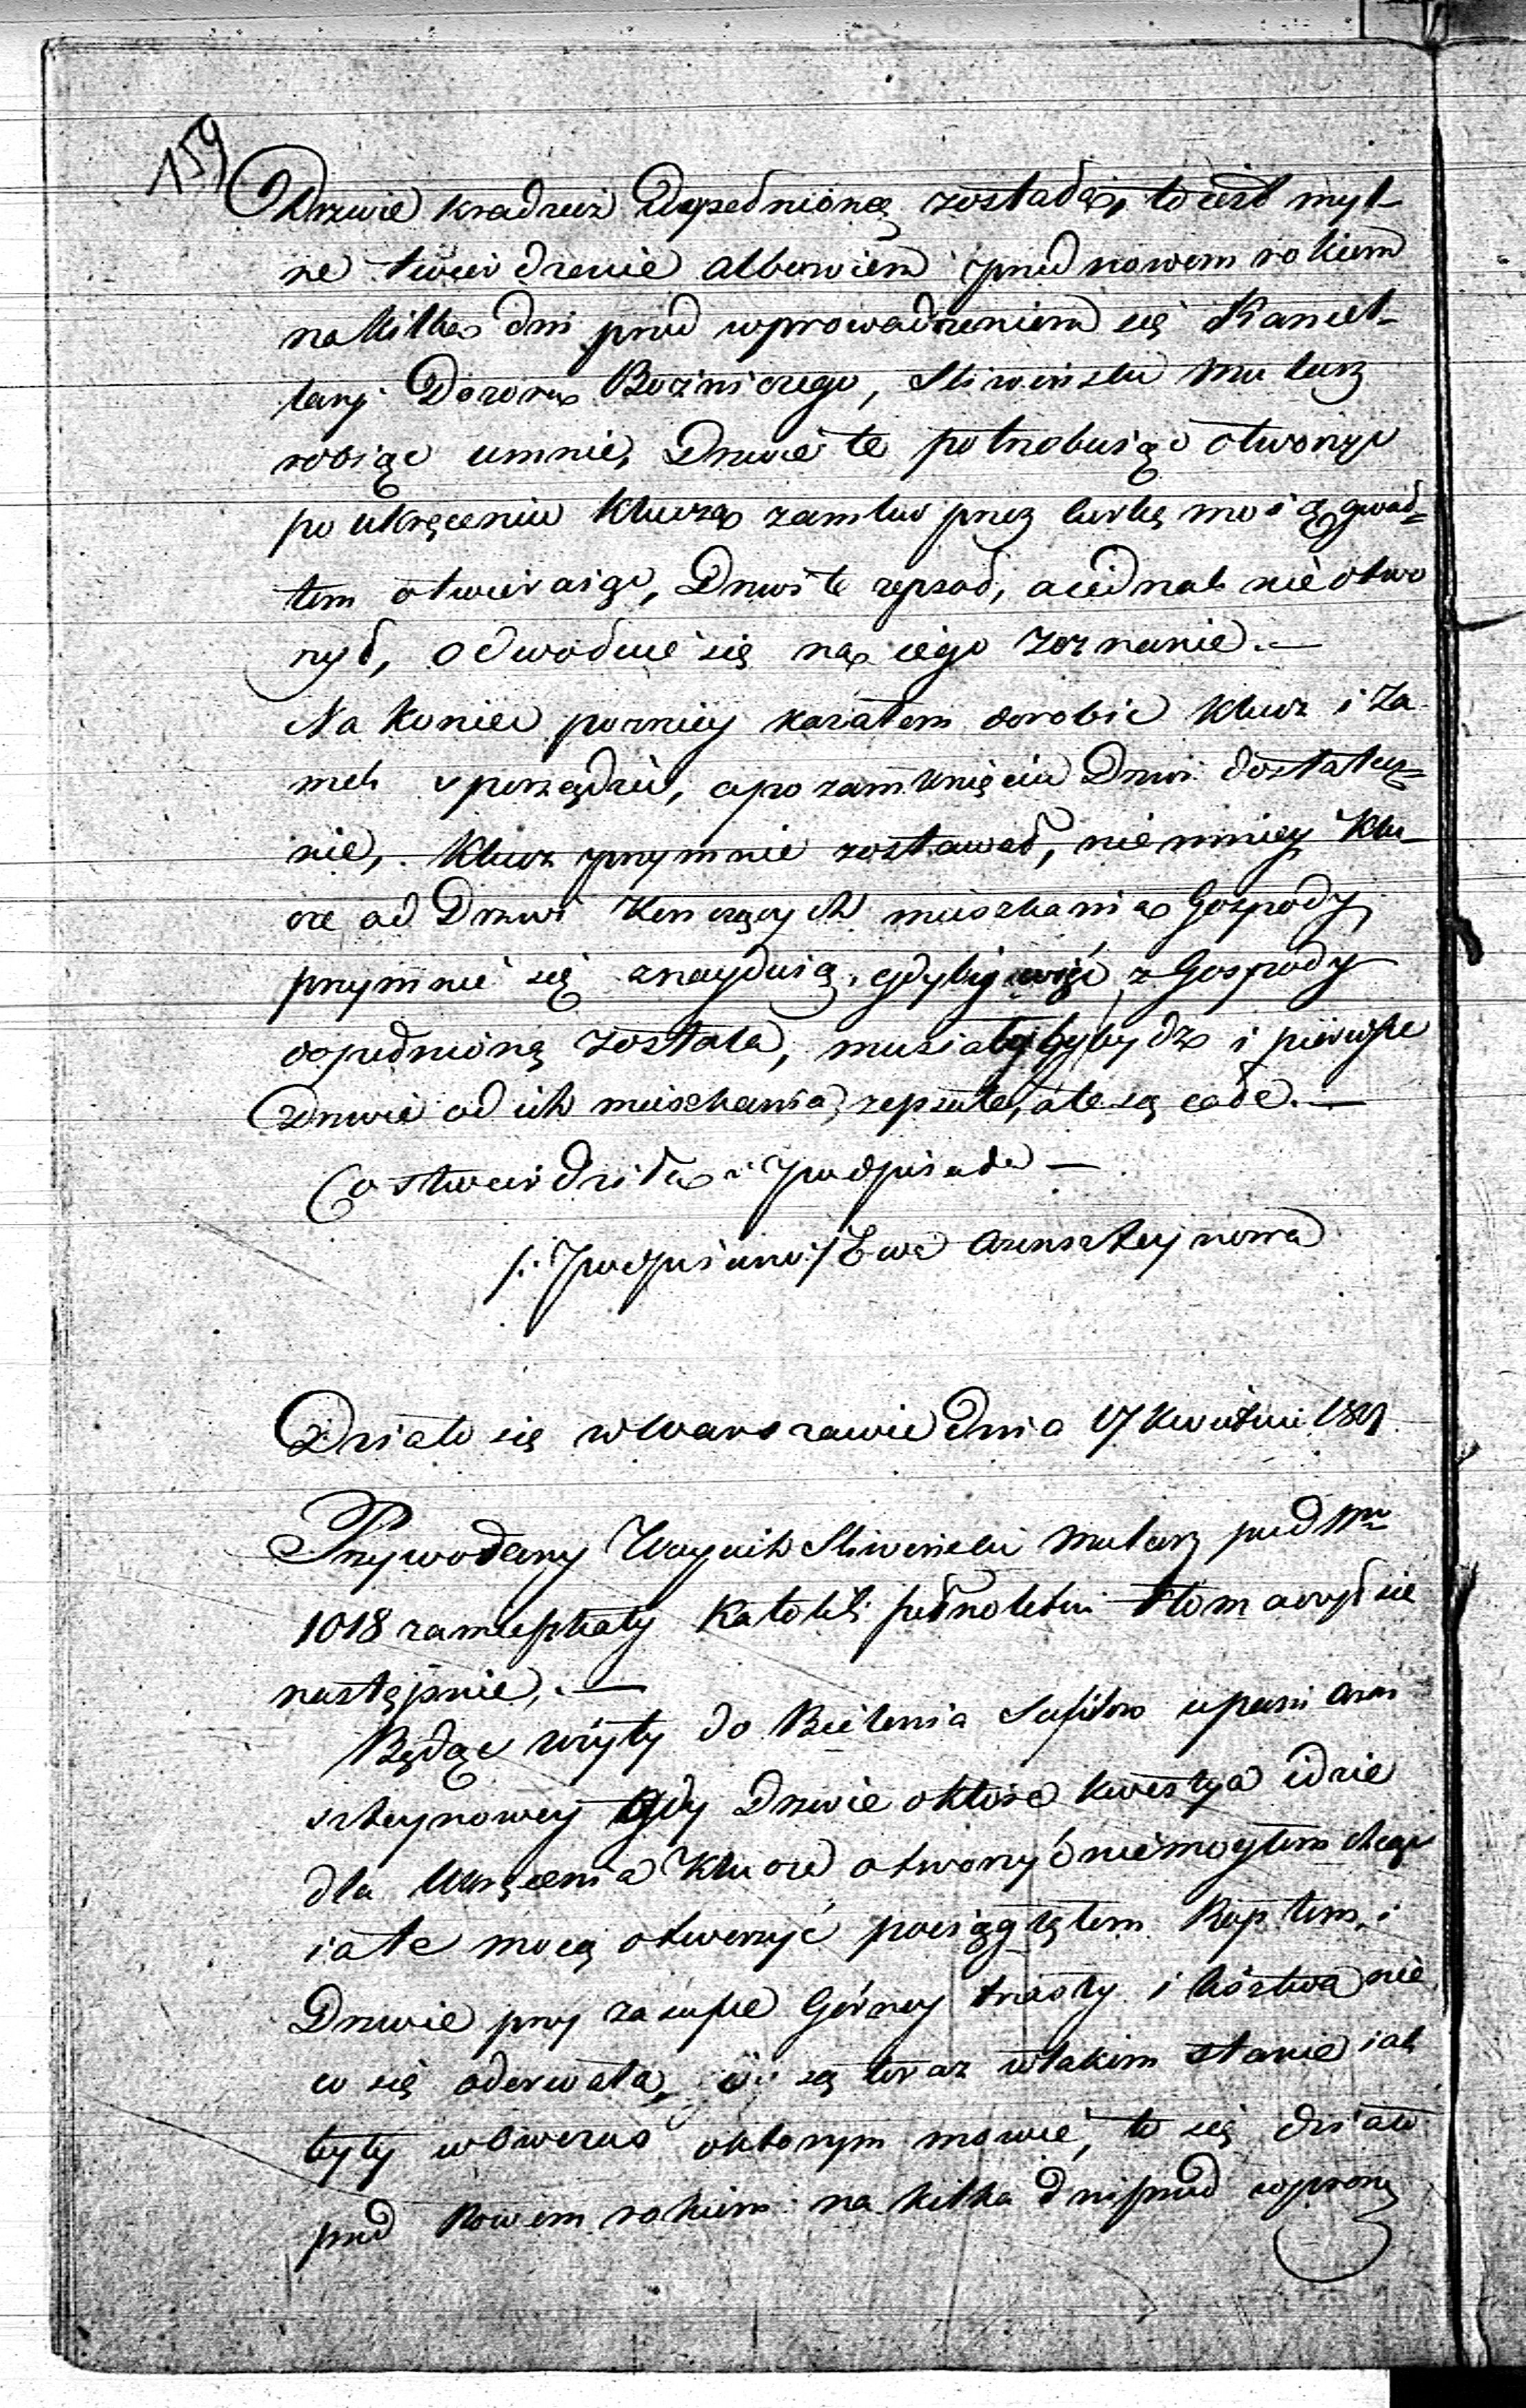 159
Drzwie kradzież dopełnioną została, to iest myl-
ne twierdzenie albowiem przed nowem rokiem
na kilka dni przed wprowadzeniem się Kancel-
laryi Dozoru Bożniczego, Sliwinski Mularz
robiąc umnie, Drzwi te potrzebuiąc otworzyć
po ukręceniu klucza zamku przez mosią gwał-
tem otwieraiąc, Drzwi te zepsuł, aiednak nie otwo
rzył, odwołuie się na iego zeznanie. —
Na koniec pozniey kazałem dorobic klucz i za-
mek sporządzić, apo zamknięciu Drzwi dostatecz-
nie, klucz przymnie zostawał, niemniey klu-
cze od Drzwi kończących mieszkania Gospody
przymnie się znayduią, gdyby więc z Gospody
dopełnioną została, musiałyby bydź i pierwsze
Drzwie od ich mieszkania zepsute, ale są całe. —
Co stwierdziła i podpisała —
/: podpisano :/ Ewa Orenszteynowa
Działo się w Warszawie Dnia 17 Kwietnia 1821
Przywołany Woyciech Sliwinski Mularz pod Nr
1018 zamieszkały Katolik pełnoletni tłomaczył sie
następnie. —
Będąc wzięty do Bielenia Sufitow upani Oren
szteynowey gdy Drzwie októre kwestya idzie
dla Ukręcenia Klucza otworzyć niemogłem chcąc
iate mocą otworzyć pociągnąłem i
Drzwie przy zasuwie Górney trzasły i listwa nie
co się oderwała, są teraz wtakim stanie iak
były wówczas októrym mowie, to się działo
przed Nowem rokiem na kilka dni przed wprowa